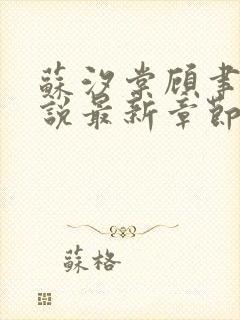 蘇汐棠顧聿
說最新章節
蘇格